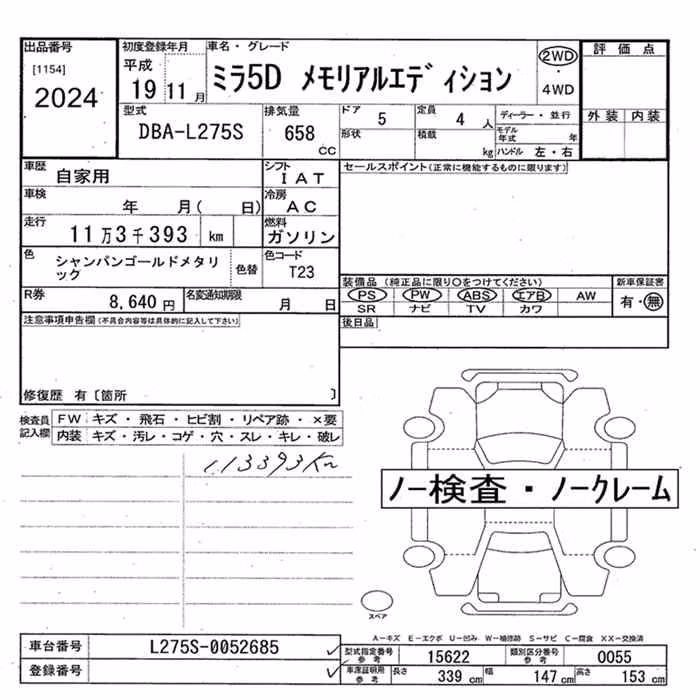 出品番号
[1154]
2024
初度登録年月
平成
19 11 月
車名・グレード
ミラ5D メモリアルエディション
2WD
・
4WD
評価点
外装 内装
型式
DBA-L275S
排気量
658
CC
ドア
5
形状
定員
4 人
積載
kg
ディーラー・並行
モデル
年式
年
ハンドル 左・右
車歴
自家用
シフト
IAT
車検
年 月( 日)
冷房
AC
走行
11万3千393 km
燃料
ガソリン
色
シャンパンゴールドメタリ
ック
色替
色コード
T23
R券
8,640 円
名変通知期限
月 日
セールスポイント(正常に機能するものに限ります)
装備品 (純正品に限り○をつけてください)
PS PW ABS エアB AW
SR ナビ TV カワ
新車保証書
有・無
後日品
注意事項申告欄(不具合内容等は具体的に記入して下さい)
修復歴 有〔箇所 〕
検査員
記入欄
FW キズ・飛石・ヒビ割・リペア跡・×要
内装 キズ・汚レ・コゲ・穴・スレ・キレ・破レ
113393Km
ノー検査・ノークレーム
スペア
A-キズ E-エクボ U-凹み W-補修跡 S-サビ C-腐食 XX-交換済
車台番号
L275S-0052685
登録番号
型式指定番号
参考
15622
類別区分番号
参考
0055
車庫証明用
参考
長さ
339 cm
幅
147 cm
高さ
153 cm